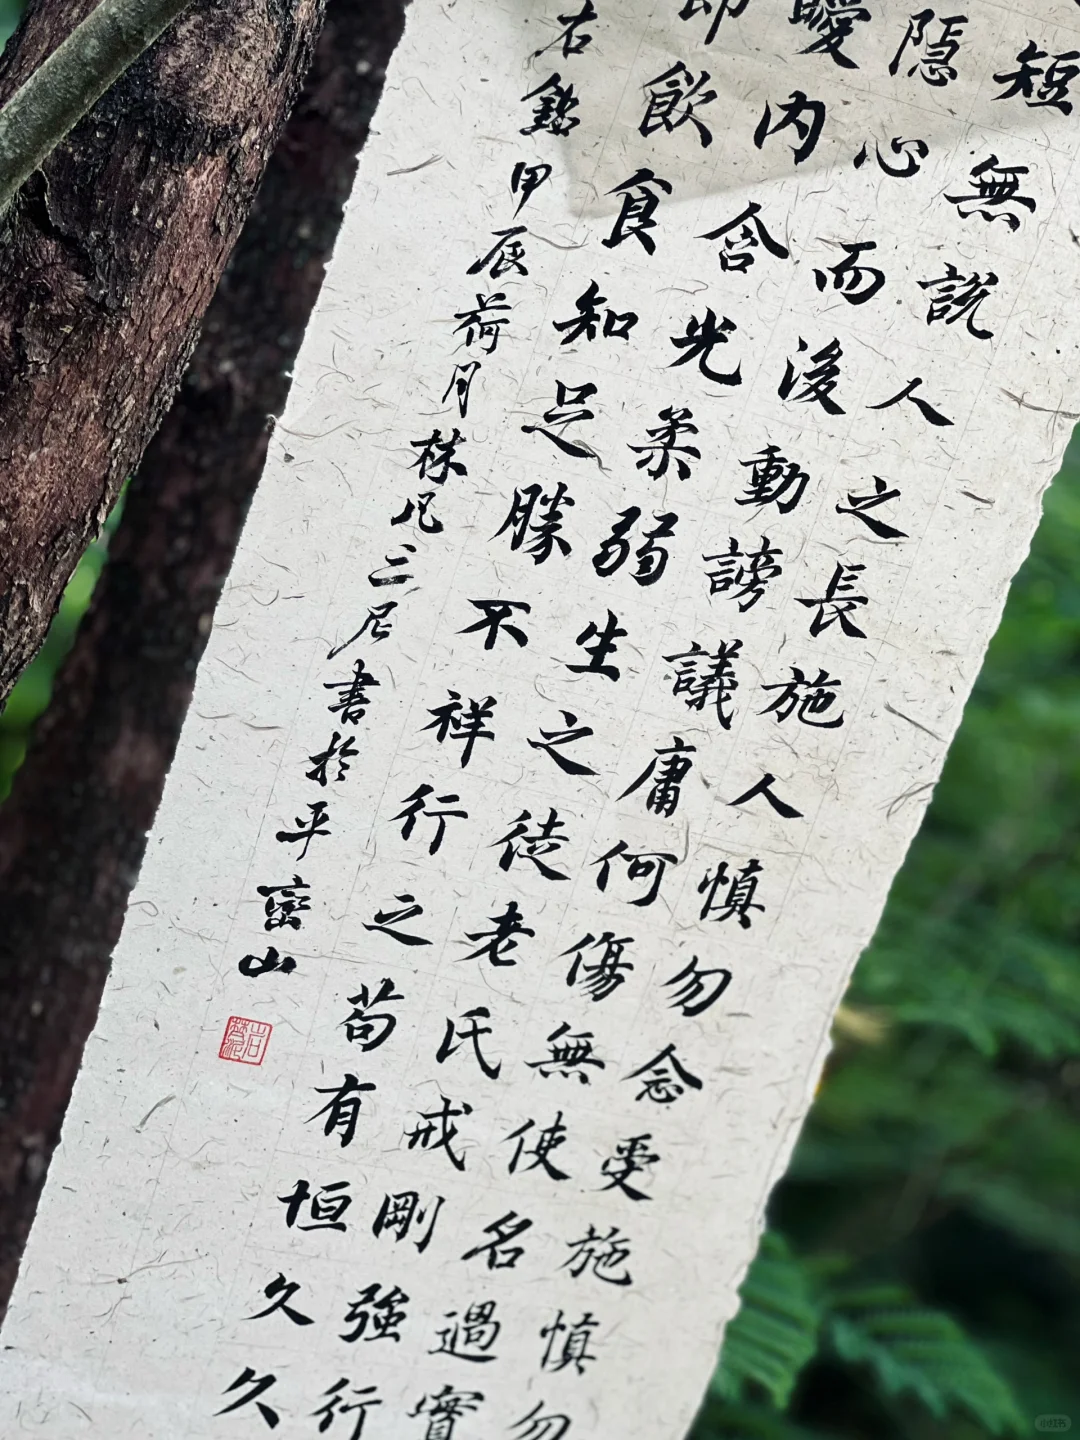 短無說人之長施人慎勿念受施慎勿
隱心而後動謗議庸何傷無使名過實
曖內含光柔弱生之徒老氏戒剛強行
飲食知足勝不祥行之苟有恒久久
右銘甲辰荷月三尼書於平巒山